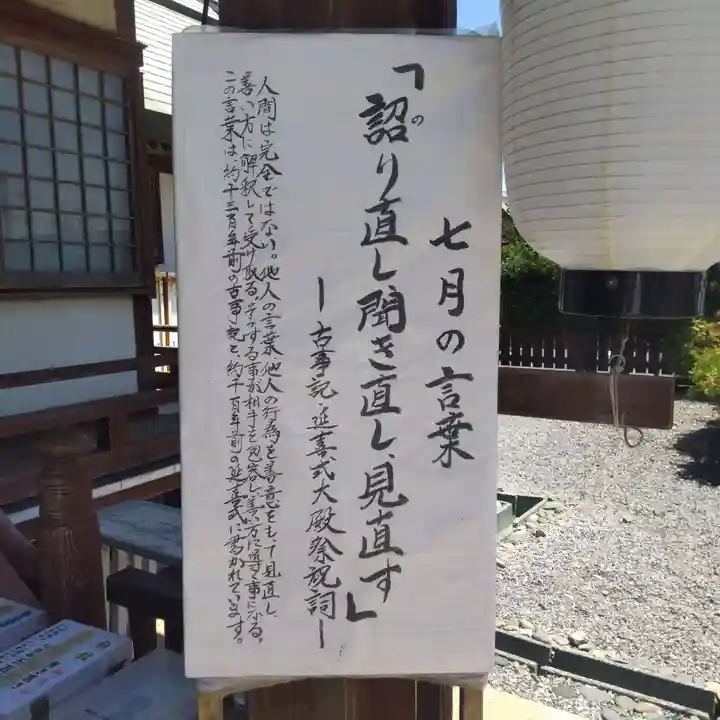 七月の言葉
「詔り直し、聞き直し、見直す」
の
ー古事記・延喜式大殿祭祝詞ー
人間は完全ではない。他人の言葉、他人の行為を善意をもって見直し、
善い方に解釈して受け取る。そうする事が相手を包容し、善い方に導く事になる。
この言葉は、約千三百年前の古事記と、約千百年前の延喜式に書かれています。